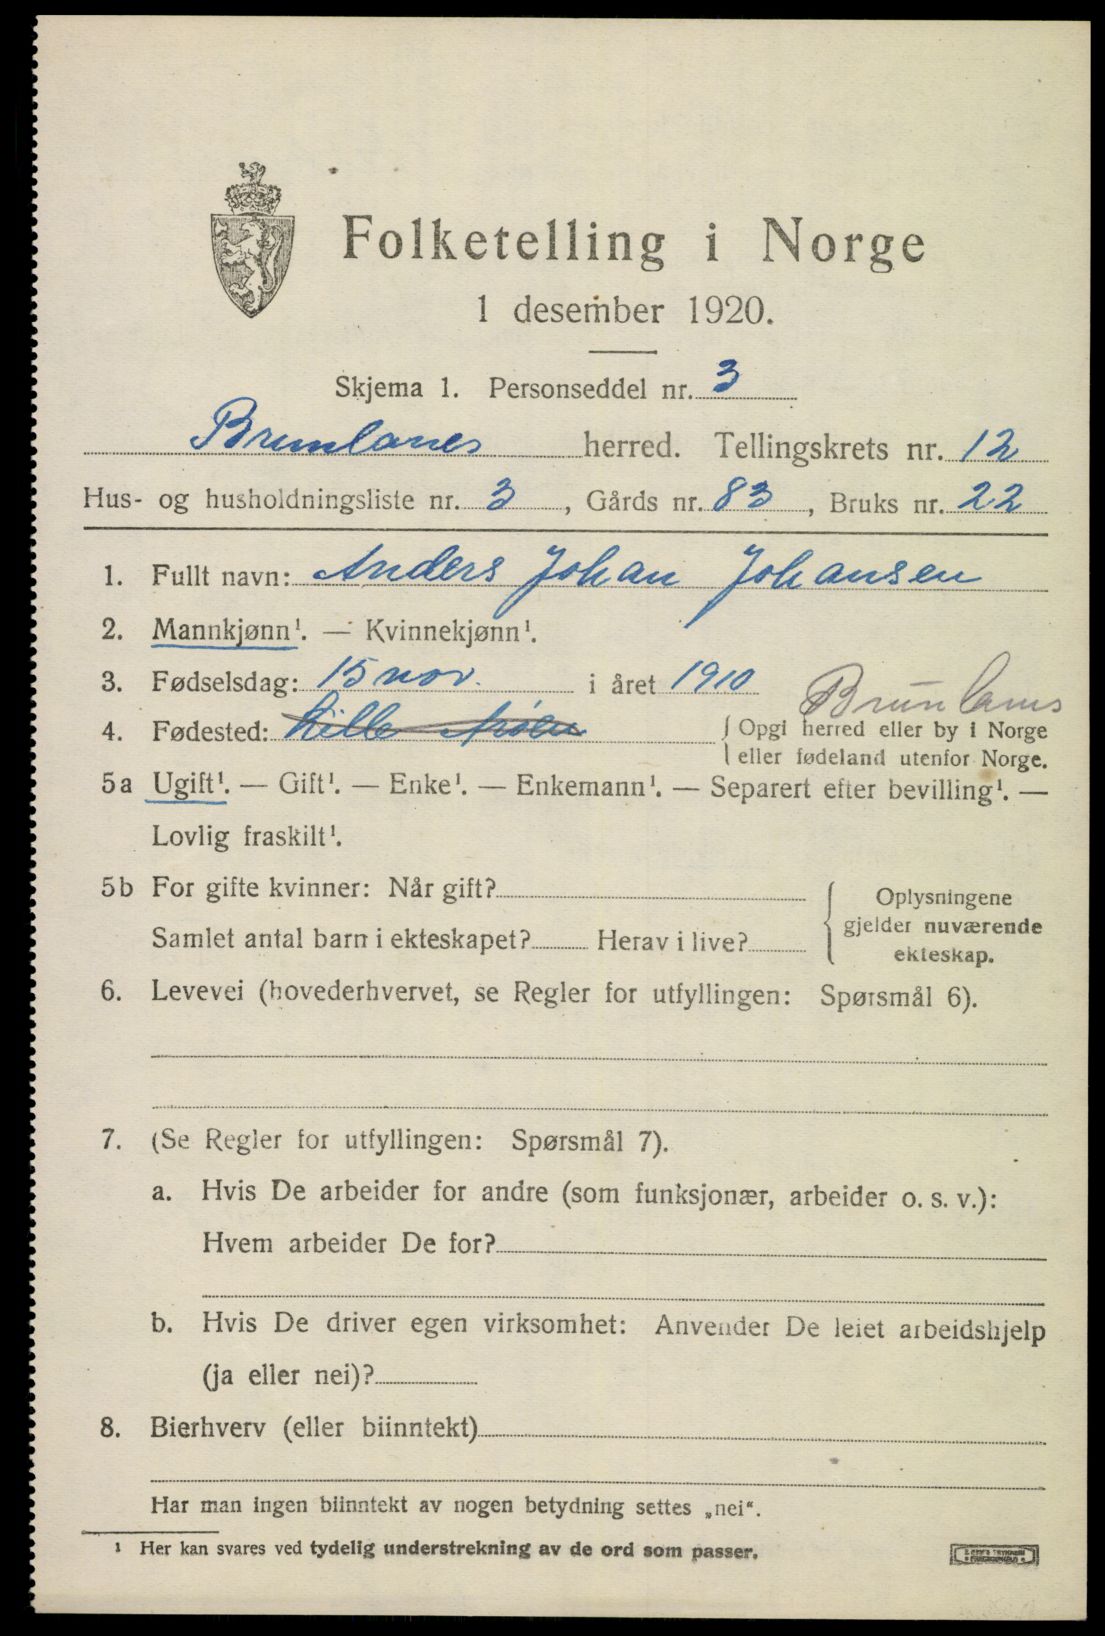 Folketelling i Norge
1 desember 1920.
Skjema 1. Personseddel nr. 3
Brunlanes herred. Tellingskrets nr. 12
Hus- og husholdningsliste nr. 3, Gårds nr. 83, Bruks nr. 22
1. Fullt navn: Anders Johan Johansen
2. Mannkjønn¹. — Kvinnekjønn¹.
3. Fødselsdag: 15 nov. i året 1910 Brunlanes
4. Fødested: Lille { Opgi herred eller by i Norge
eller fødeland utenfor Norge.
5a Ugift¹. — Gift¹. — Enke¹. — Enkemann¹. — Separert efter bevilling¹. —
Lovlig fraskilt¹.
5b For gifte kvinner: Når gift?
Samlet antal barn i ekteskapet? Herav i live?
{ Oplysningene
gjelder nuværende
ekteskap.
6. Levevei (hovederhvervet, se Regler for utfyllingen: Spørsmål 6).
7. (Se Regler for utfyllingen: Spørsmål 7).
a. Hvis De arbeider for andre (som funksjonær, arbeider o. s. v.):
Hvem arbeider De for?
b. Hvis De driver egen virksomhet: Anvender De leiet arbeidshjelp
(ja eller nei)?
8. Bierhverv (eller biinntekt)
Har man ingen biinntekt av nogen betydning settes „nei“.
¹ Her kan svares ved tydelig understrekning av de ord som passer.